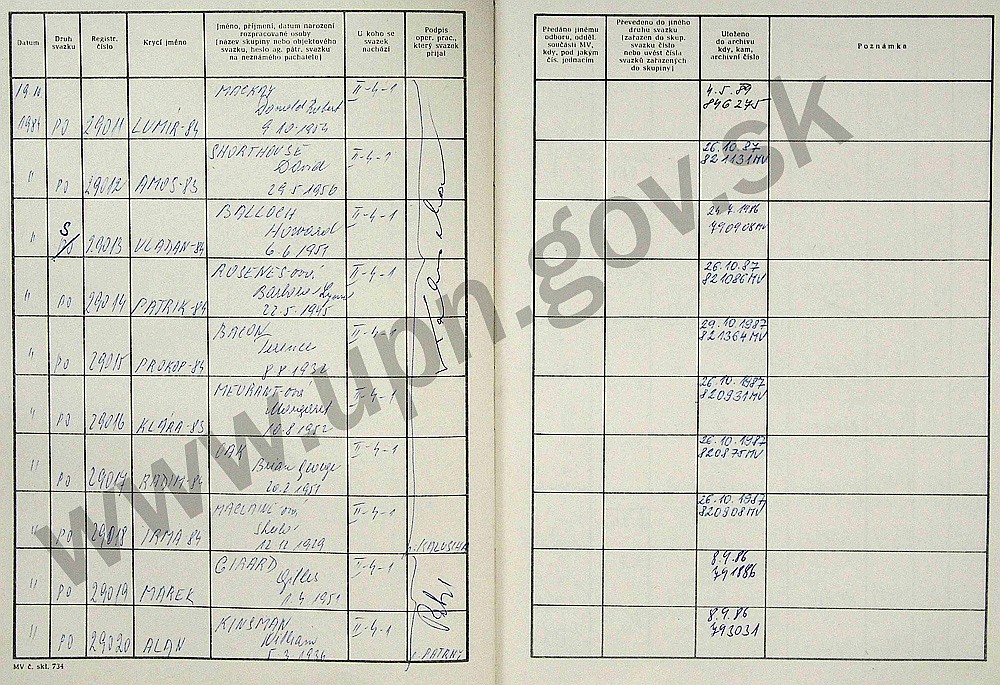 Datum
Druh
svazku
Registr.
číslo
Krycí jméno
Jméno, příjmení, datum narození
rozpracované osoby
[název skupiny nebo objektového
svazku, heslo ag. pátr. svazku
na neznámého pachatele]
U koho se
svazek
nachází
Podpis
oper. prac.,
který svazek
přijal
Předáno jinému
odboru, odděl.
součásti MV,
kdy, pod jakým
čís. jednacím
Převedeno do jiného
druhu svazku
[zařazen do skup.
svazku číslo
nebo uvést čísla
svazků zařazených
do skupiny]
Uloženo
do archivu
kdy, kam,
archivní číslo
Poznámka
1984 PO 29011 LUMÍR-84
MACKAY
Donald Robert
9.10.1954
II-4-1
4.5.89
846275
" PO 29012 AMOS-83
SHORTHOUSE
David
29.5.1956
II-4-1
26.10.87
821131MV
" S PO 29013 VLADAN-84
BALLOCH
Howard
6.6.1951
II-4-1
790908MV
" PO 29014 PATRIK-84
ROSENES-ová
22.5.1945
II-4-1
26.10.87
821086MV
" PO 29015 PROKOP-84
BACON
Terence
II-4-1
29.10.1987
821364MV
" PO 29016 KLÁRA-83
MEURANT-ová
Margaret
10.8.1952
II-4-1
26.10.1987
820931MV
" PO 29017 RADIM-84
OAK
Brian George
20.2.1951
II-4-1
26.10.1987
820875MV
" PO 29018 IRMA-84
II-4-1
KALUSIHA
26.10.1987
820908MV
" PO 29019 MAREK
GIRARD
Gilles
1.4.1951
II-4-1
8.9.86
791886
" PO 29020 ALAN
KINSMAN
William
5.3.1936
II-4-1
PATRNÝ
8.9.86
793031
MV č. skl. 734
www.upn.gov.sk